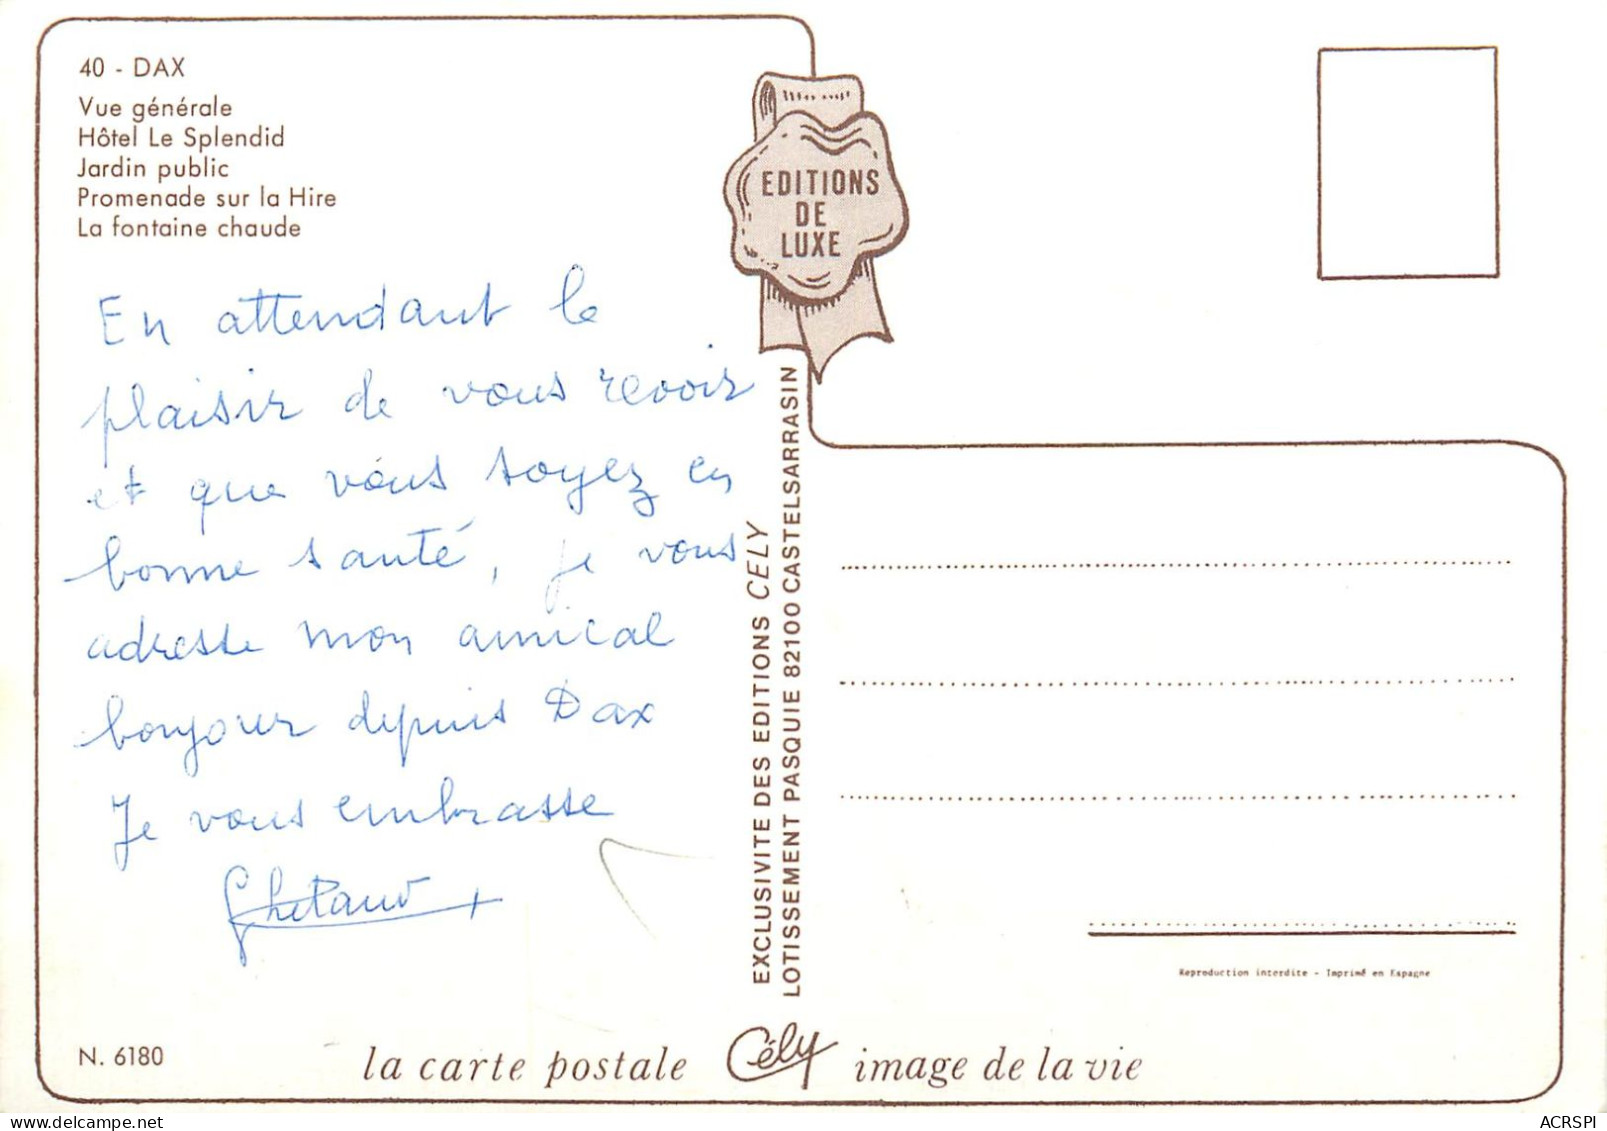 40 - DAX
Vue générale
Hôtel Le Splendid
Jardin public
Promenade sur la Hire
La fontaine chaude
En attendant le
plaisir de vous revoir
et que vous soyez en
bonne santé, je vous
adresse mon amical
bonjour depuis Dax
Je vous embrasse
EDITIONS
DE
LUXE
EXCLUSIVITE DES EDITIONS CELY
LOTISSEMENT PASQUIE 82100 CASTELSARRASIN
Reproduction interdite - Imprimé en Espagne
N. 6180
la carte postale Cély image de la vie
ACRSPI